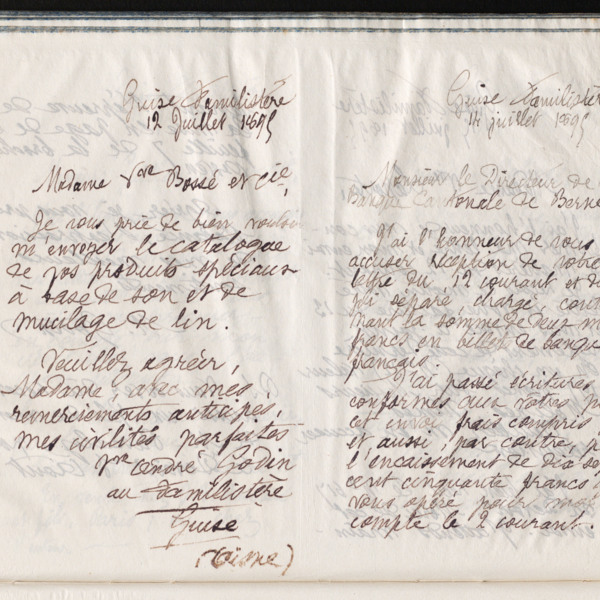 Guise Familistère
12 Juillet 1895
Madame Vve Bossé et Cie,
Je vous prie de bien vouloir
m'envoyer le catalogue
de vos produits spéciaux
à base de son et de
mucilage de lin.
Veuillez agréer,
Madame, avec mes
remerciements anticipés,
mes civilités parfaites
Vve André Godin
au Familistère
Guise
(Aisne)
Guise Familistère
14 juillet 1895
Monsieur le Directeur de
Banque Cantonale de Berne
J'ai l'honneur de vous
accuser réception de votre
lettre du 12 courant et d
pli séparé chargé, cont
nant la somme de deux m
francs en billet de banque
français.
J'ai passé écritures
conformes aux vôtres p
cet envoi frais compris
et aussi, par contre, p
l'encaissement de dix se
cent cinquante francs
vous opéré pour mo
compte le 2 courant.